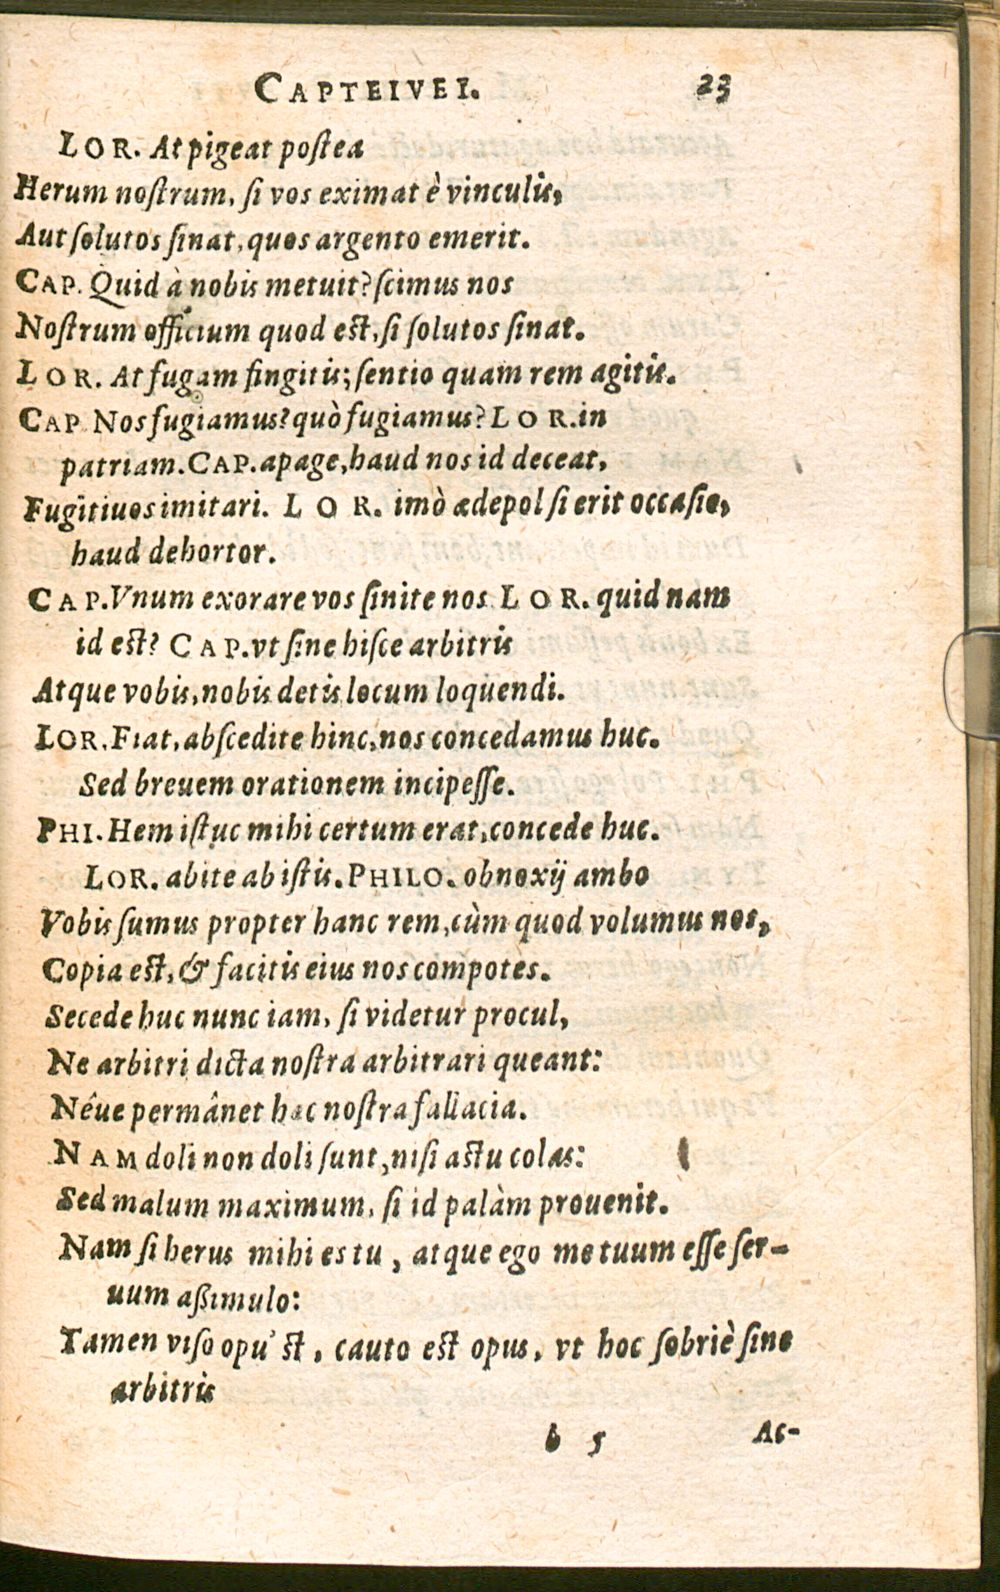 CAPTEIVEI. 23
LOR. At pigeat postea
Herum nostrum, si vos eximat è vinculis,
Aut solutos sinat, quos argento emerit.
CAP. Quid à nobis metuit? scimus nos
Nostrum officium quod est, si solutos sinat.
LOR. At fugam fingitis; sentio quam rem agitis.
CAP Nos fugiamus? quò fugiamus? LOR. in
patriam. CAP. apage, haud nos id deceat,
Fugitiuos imitari. LOR. imò ædepol si erit occasio,
haud dehortor.
CAP. Vnum exorare vos sinite nos LOR. quid nam
id est? CAP. vt sine hisce arbitris
Atque vobis, nobis detis locum loquendi.
LOR. Fiat, abscedite hinc, nos concedamus huc.
Sed breuem orationem incipesse.
PHI. Hem istuc mihi certum erat, concede huc.
LOR. abite ab istis. PHILO. obnoxij ambo
Vobis sumus propter hanc rem, cùm quod volumus nos,
Copia est, & facitis eius nos compotes.
Secede huc nunc iam, si videtur procul,
Ne arbitri dicta nostra arbitrari queant:
Nêue permânet hac nostra fallacia.
NAM doli non doli sunt, nisi astu colas:
Sed malum maximum, si id palàm prouenit.
Nam si herus mihi es tu, atque ego me tuum esse ser-
uum assimulo:
Tamen viso opu' st, cauto est opus, vt hoc sobriè sine
arbitris
b 5 Ac-